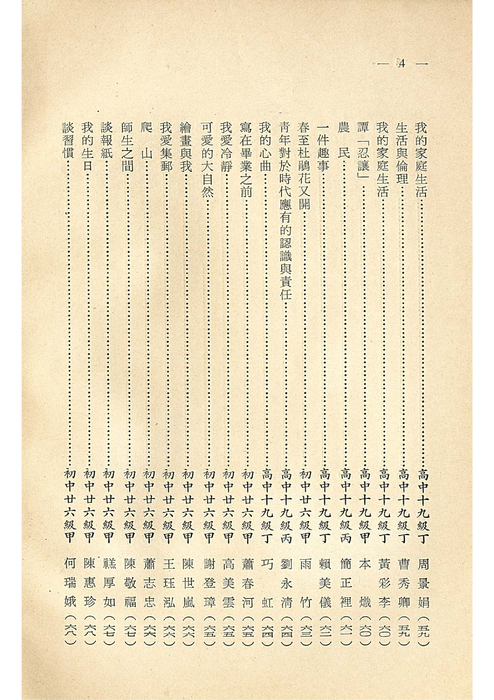 — 4 —
我的家庭生活……高中十九級丁 周景娟（五九）
生活與倫理……高中十九級丁 曹秀卿（五九）
我的家庭生活……高中十九級丁 黃彩李（六〇）
譚「忍讓」……高中十九級丁 本熾（六〇）
農民……高中十九級丙 簡正裡（六一）
一件趣事……高中十九級丁 賴美儀（六二）
春至杜鵑花又開……初中廿六級甲 雨竹（六三）
青年對於時代應有的認識與責任……高中十九級丙 劉永清（六四）
我的心曲……高中十九級丁 巧虹（六四）
寫在畢業之前……初中廿六級甲 蕭春河（六五）
我愛冷靜……初中廿六級甲 高美雲（六五）
可愛的大自然……初中廿六級甲 謝登璋（六五）
繪畫與我……初中廿六級甲 陳世嵐（六六）
我愛集郵……初中廿六級甲 王珏泓（六六）
爬山……初中廿六級甲 蕭志忠（六六）
師生之間……初中廿六級甲 陳敬福（六七）
談報紙……初中廿六級甲 厚如（六七）
我的生日……初中廿六級甲 陳惠珍（六八）
談習慣……初中廿六級甲 何瑞娥（六八）